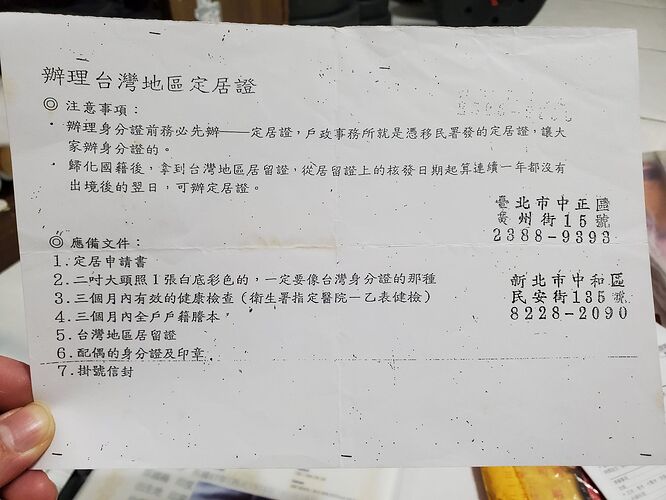 辦理台灣地區定居證
◎ 注意事項：
· 辦理身分證前務必先辦——定居證，戶政事務所就是憑移民署發的定居證，讓大
家辦身分證的。
· 歸化國籍後，拿到台灣地區居留證，從居留證上的核發日期起算連續一年都沒有
出境後的翌日，可辦定居證。
臺北市中正區
廣州街15號
2388-9393
◎ 應備文件：
1.定居申請書
2.二吋大頭照1張白底彩色的，一定要像台灣身分證的那種
3.三個月內有效的健康檢查（衛生署指定醫院－乙表健檢）
4.三個月內全戶戶籍謄本，
5.台灣地區居留證
6.配偶的身分證及印章
7.掛號信封
新北市中和區
民安街135號
8228-2090